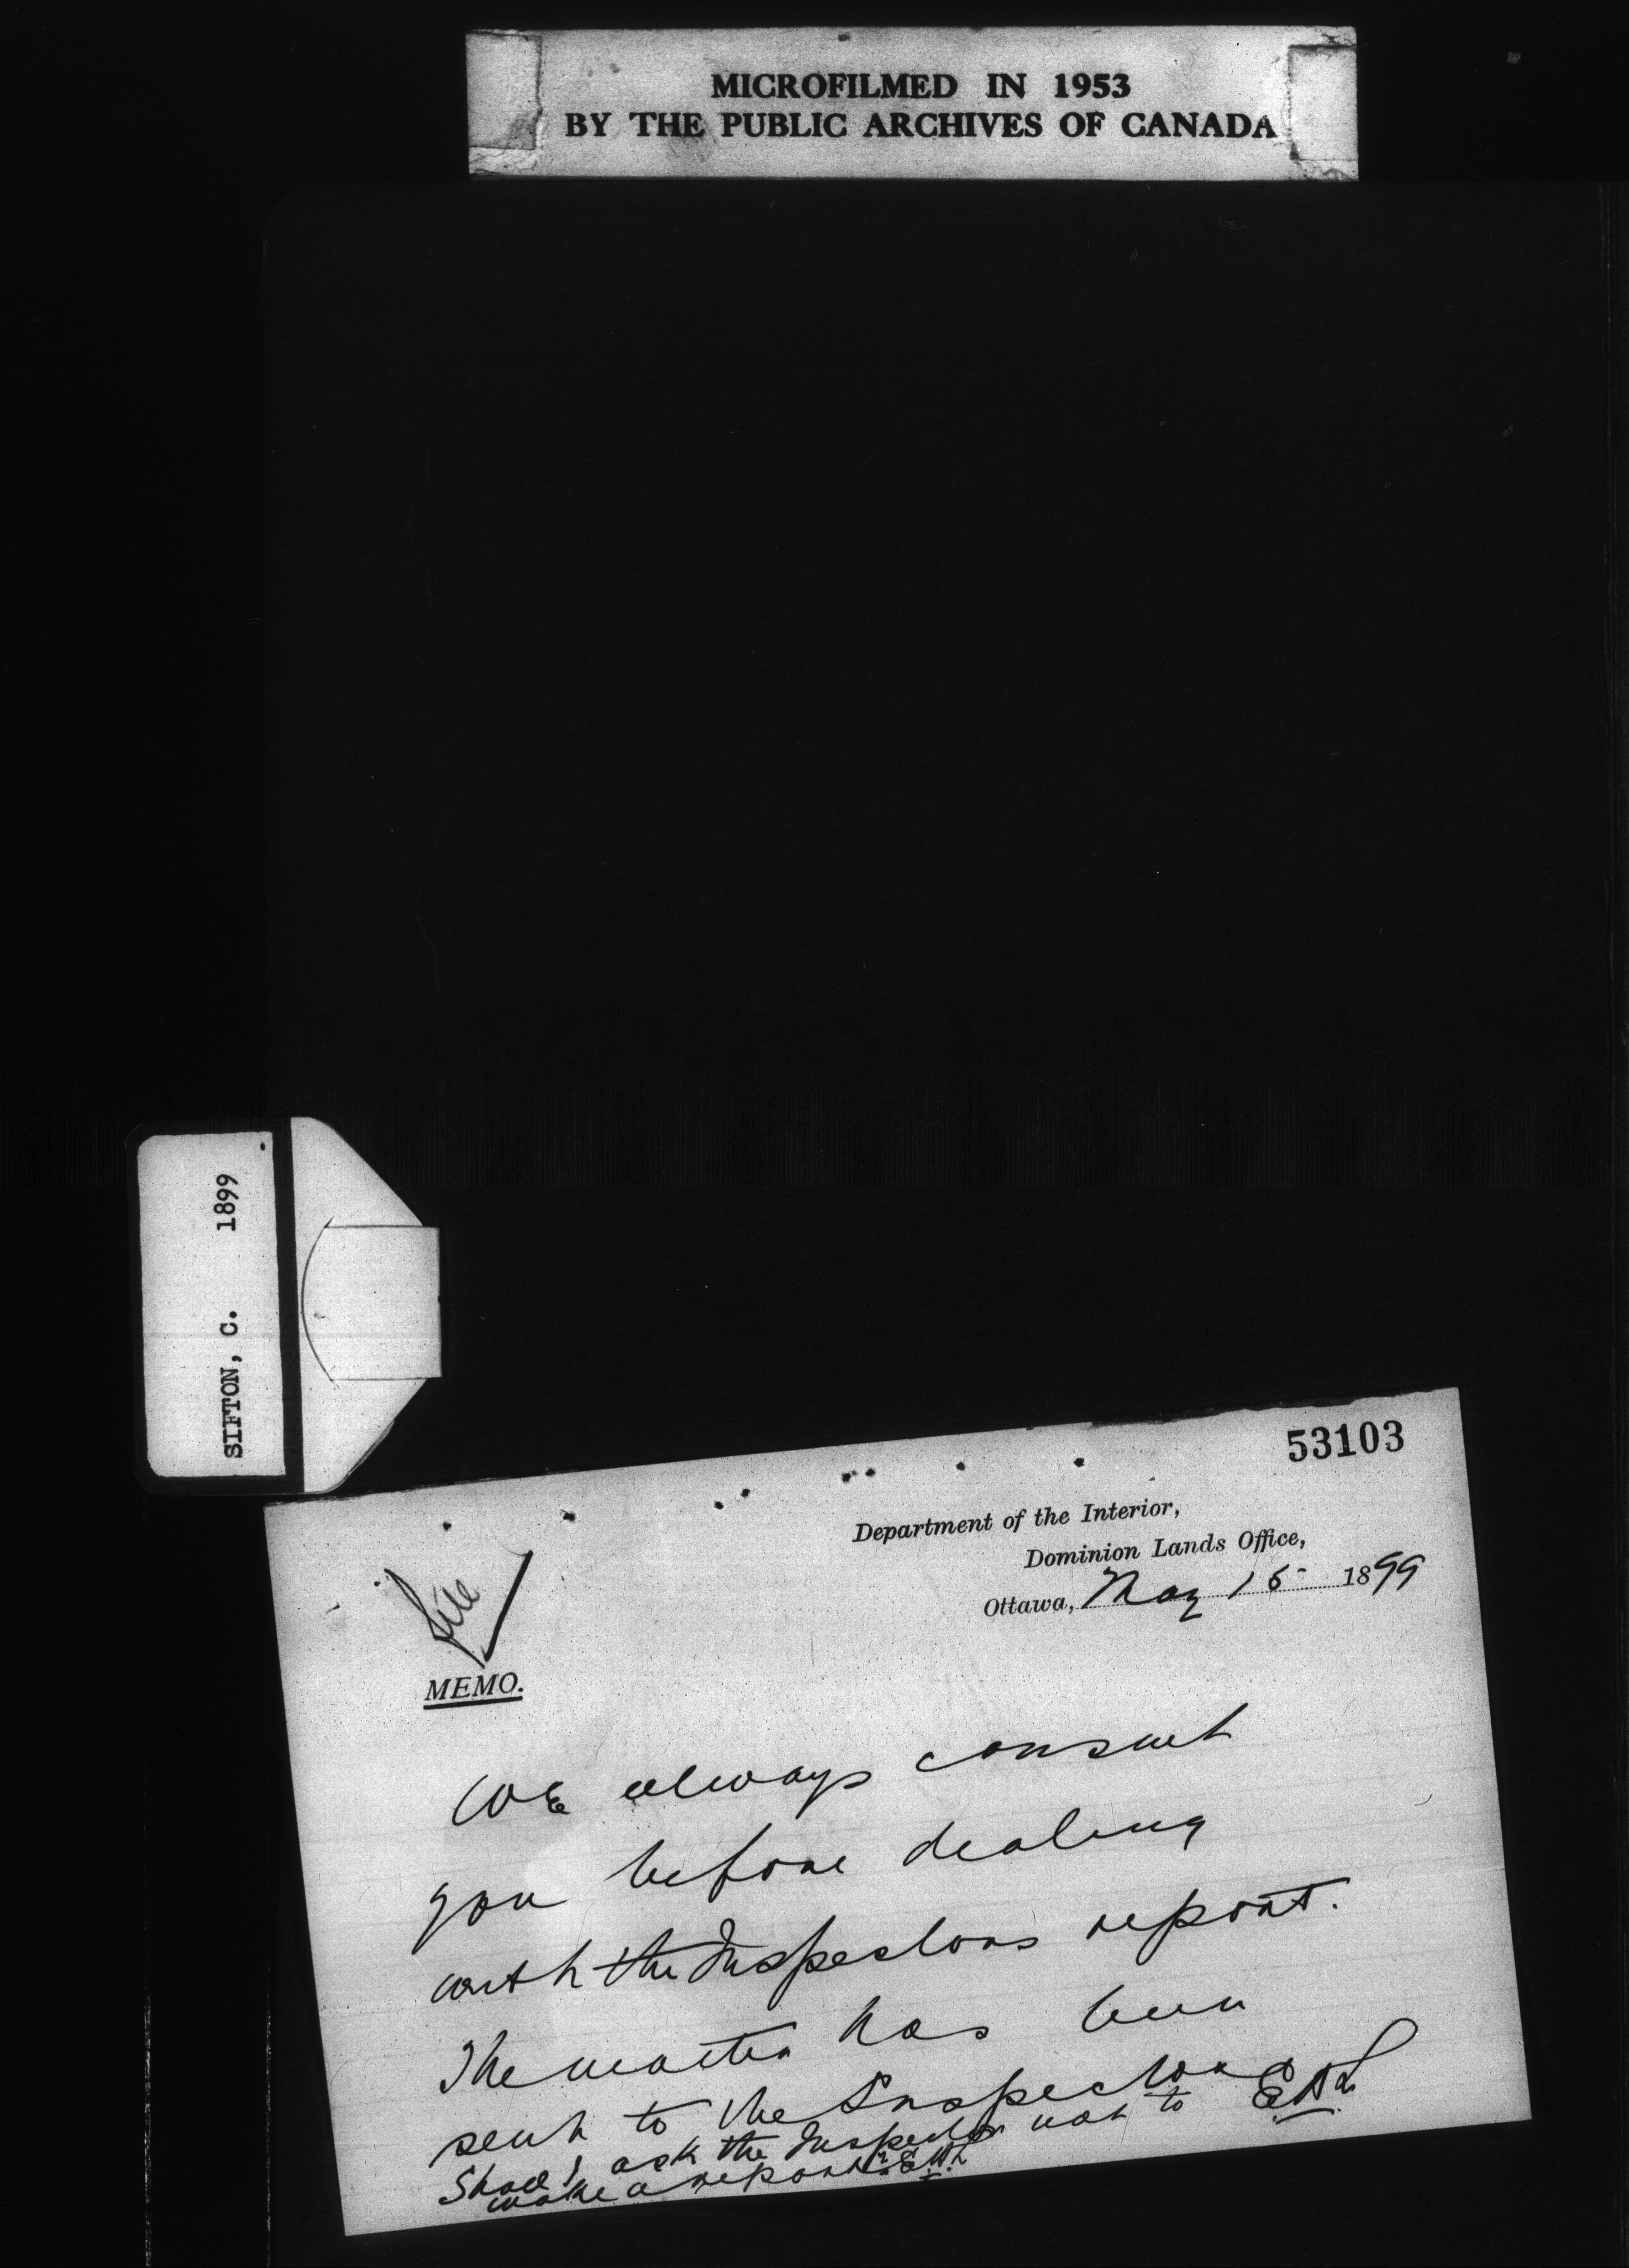 MICROFILMED IN 1953
BY THE PUBLIC ARCHIVES OF CANADA
SIFTON, C. 1899
53103
Department of the Interior,
Dominion Lands Office,
Ottawa, May 15 1899
file
MEMO.
We always consult
you before dealing
with the Inspectors report.
The matter has been
sent to the Inspector
Shall I ask the Inspector not to
make a report?